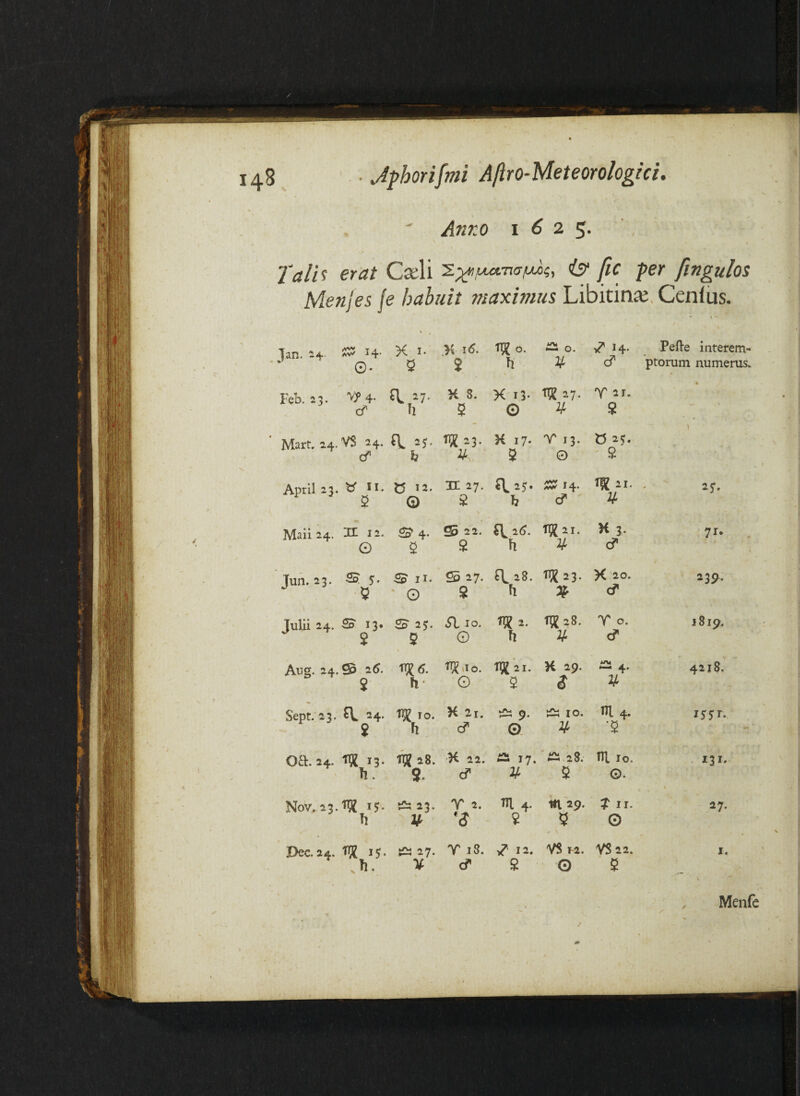 148 Aphorismi Astro-Meteorologici.
Anno 1 6 2 5.
Talis erat Cæli Σχηματισμὸς, & sic per singulos
Menses se habuit maximus Libitinæ Census.
Jan. 24. ♒ 14. ♓ 1. ♓ 16. ♍ 0. ♎ 0. ♐ 14. Peste interem-
☉. ☿ ♀ ♄ ♃ ♂ ptorum numerus.
Feb. 23. ♑ 4. ♌ 27. ♓ 8. ♓ 13. ♍ 27. ♈ 21.
♂ ♄ ☿ ☉ ♃ ♀
Mart. 24. ♑ 24. ♌ 25. ♍ 23. ♓ 17. ♈ 13. ♉ 25.
♂ ♄ ♃ ☿ ☉ ♀
April 23. ♉ 11. ♉ 12. ♊ 27. ♌ 25. ♒ 14. ♍ 21. 25.
☿ ☉ ♀ ♄ ♂ ♃
Maii 24. ♊ 12. ♋ 4. ♋ 22. ♌ 26. ♍ 21. ♓ 3. 71.
☉ ☿ ♀ ♄ ♃ ♂
Jun. 23. ♋ 5. ♋ 11. ♋ 27. ♌ 28. ♍ 23. ♓ 20. 239.
☿ ☉ ♀ ♄ ♃ ♂
Julii 24. ♋ 13. ♋ 25. ♌ 10. ♍ 2. ♍ 28. ♈ 0. 1819.
♀ ☿ ☉ ♄ ♃ ♂
Aug. 24. ♋ 26. ♍ 6. ♍ 10. ♍ 21. ♓ 29. ♎ 4. 4218.
♀ ♄ ☉ ☿ ♂ ♃
Sept. 23. ♌ 24. ♍ 10. ♓ 21. ♎ 9. ♎ 10. ♏ 4. 1551.
♀ ♄ ♂ ☉ ♃ ☿
Oct. 24. ♍ 13. ♍ 28. ♓ 22. ♎ 17. ♎ 28. ♏ 10. 131.
♄. ♀. ♂ ♃ ☿ ☉.
Nov. 23. ♍ 15. ♎ 23. ♈ 2. ♏ 4. ♏ 29. ♐ 11. 27.
♄ ♃ ♂ ♀ ☿ ☉
Dec. 24. ♍ 15. ♎ 27. ♈ 18. ♐ 12. ♑ 12. ♑ 22. 1.
♄. ♃ ♂ ♀ ☉ ☿
Mense